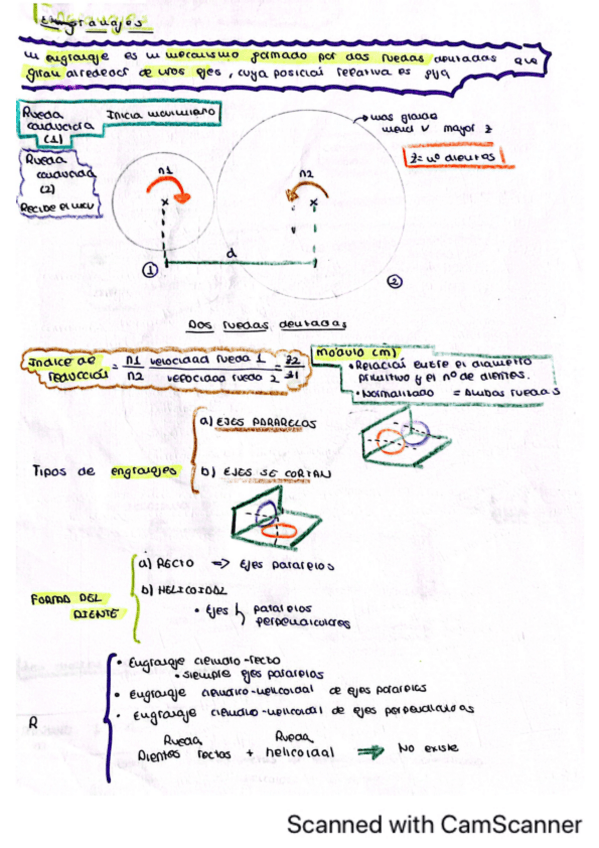 Engranajes
un engranaje es un mecanismo formado por dos ruedas dentadas que
giran alrededor de unos ejes, cuya posición relativa es fija
Rueda conductora (1)
Inicia movimiento
Rueda conducida (2)
Recibe el mov
n1
n2
más grande
menor v mayor z
z = nº dientes
d
①
②
Dos ruedas dentadas
Índice de reducción = n1 velocidad rueda 1 = z2
n2 velocidad rueda 2 z1
Módulo (m)
• Relación entre el diámetro
primitivo y el nº de dientes.
• Normalizado = ambas ruedas
Tipos de engranajes
a) EJES PARALELOS
b) EJES SE CORTAN
FORMA DEL DIENTE
a) RECTO => Ejes paralelos
b) HELICOIDAL
• Ejes paralelos
perpendiculares
R
• Engranaje cilíndrico-recto
• siempre ejes paralelos
• Engranaje cilíndrico-helicoidal de ejes paralelos
• Engranaje cilíndrico-helicoidal de ejes perpendiculares
Rueda Rueda
Dientes rectos + helicoidal => No existe
Scanned with CamScanner